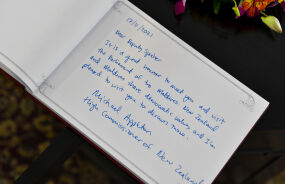 17/11/2021
Dear Deputy Speaker
It is a great honour to meet you and visit
the Parliament of the Maldives. New Zealand
and Maldives share democratic values and I am
pleased to visit you to discuss more.
Michael Appleton
High Commissioner of New Zealand